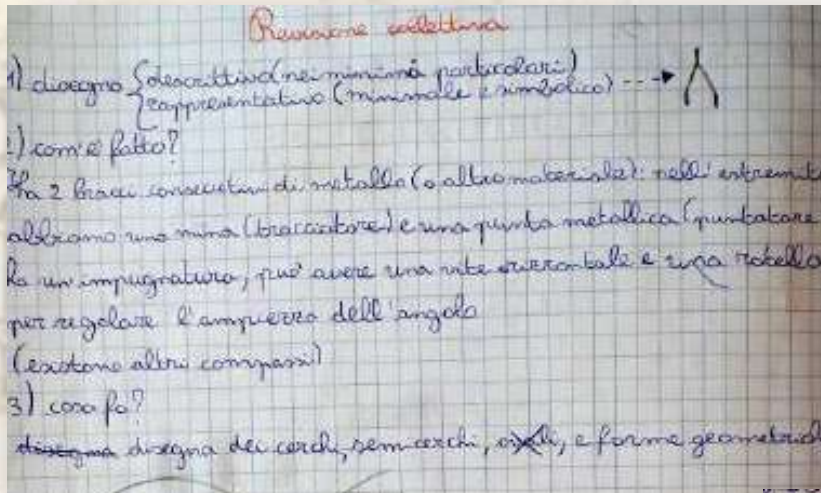 Revisione collettiva
1) disegno {descrittivo (nei minimi particolari)
{rappresentativo (minimale e simbolico)
2) com'è fatto?
Ha 2 bracci consecutivi di metallo (o altro materiale): nell'estremit
abbiamo una mina (tracciatore) e una punta metallica (puntatore
ha un'impugnatura, può avere una vite orizzontale e una rotella
per regolare l'ampiezza dell'angolo
(esistono altri compassi)
3) cosa fa?
disegna disegna dei cerchi, semicerchi, e forme geometrich